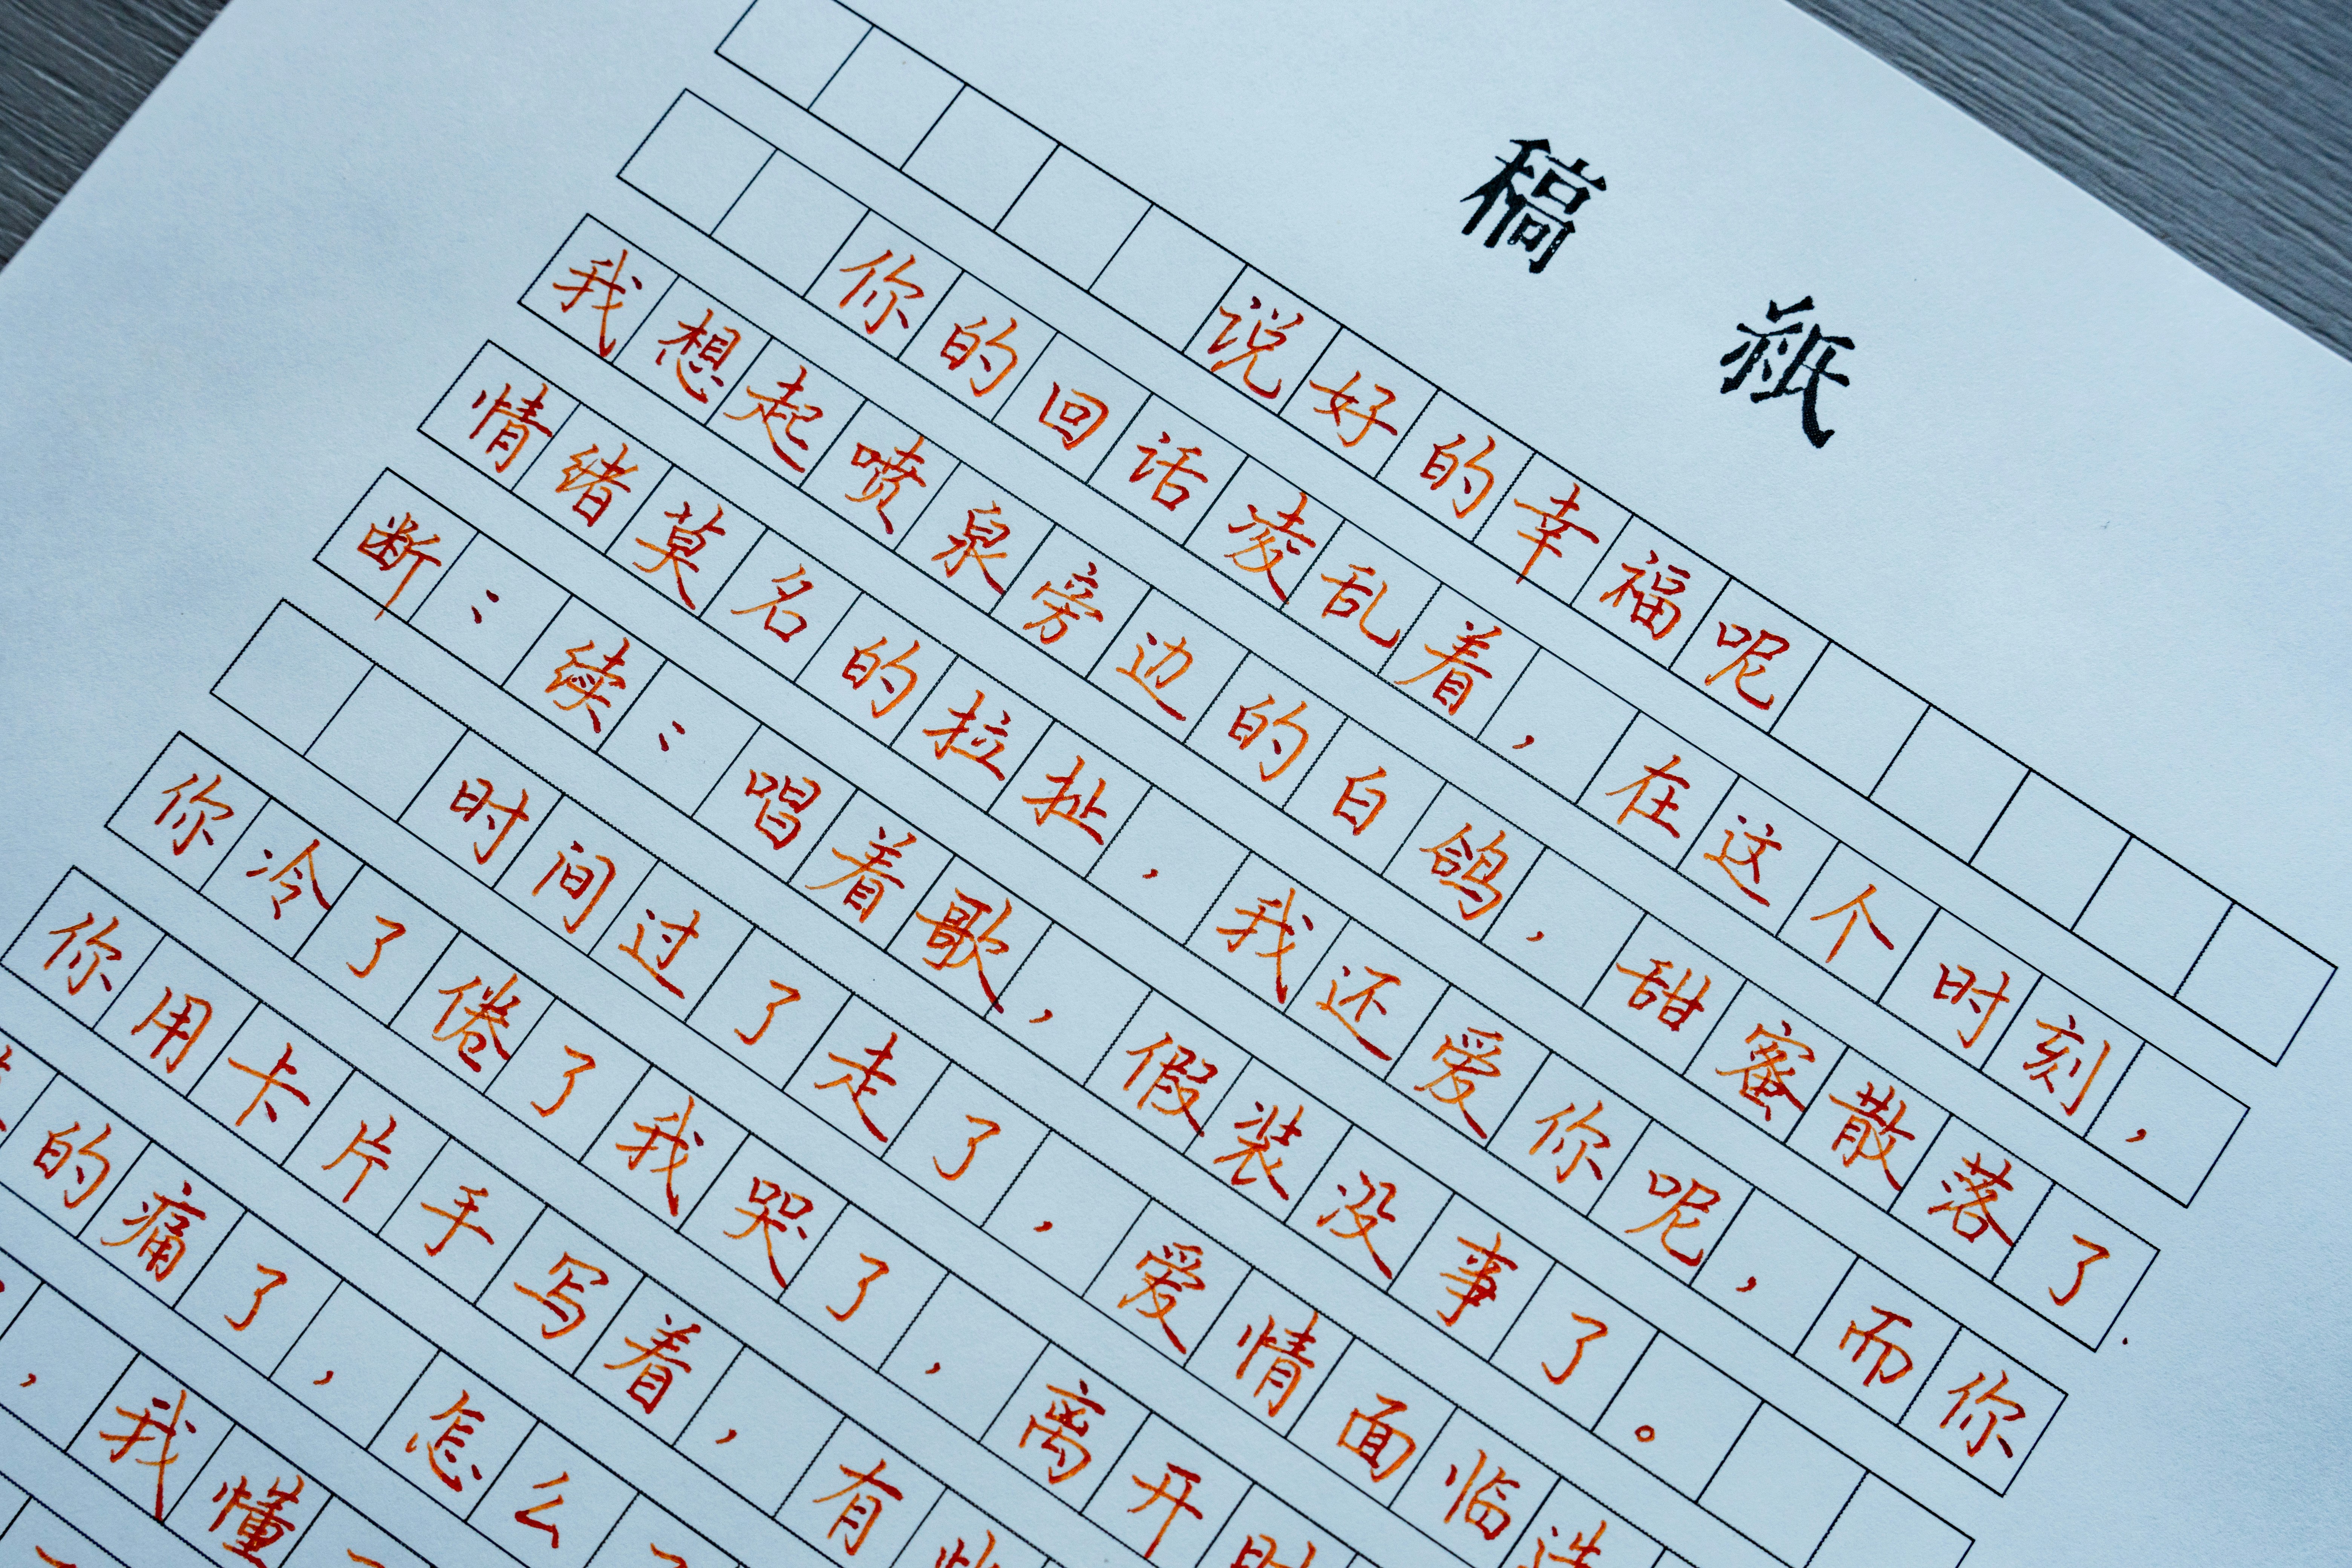 稿紙
说好的幸福呢
你的回话凌乱着，在这个时刻，
我想起喷泉旁边的白鸽，甜蜜散落了
情绪莫名的拉扯，我还爱你呢，而你
断〻续〻唱着歌，假装没事了。
时间过了走了，爱情面临选
你冷了倦了我哭了，离开时
你用卡片手写着，有些
的痛了，怎么了
，我懂